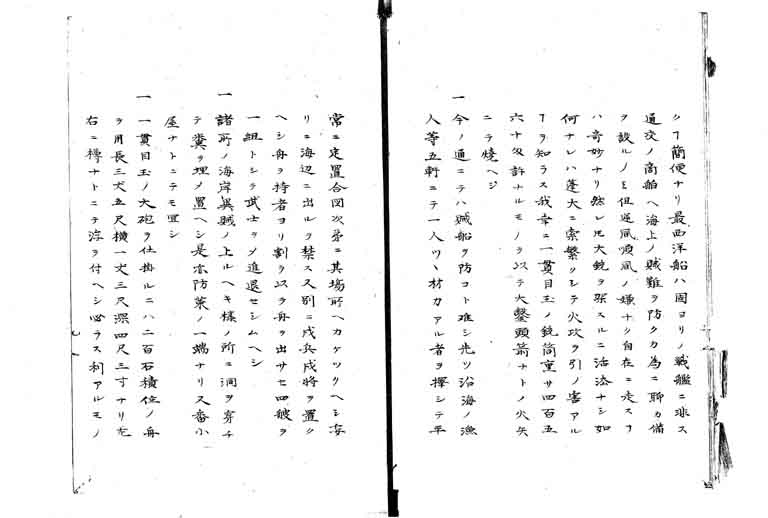 クヿ簡便ナリ最西洋船ハ固ヨリノ戦艦ニ非ス
通交ノ商船ヘ海上ノ賊難ヲ防クカ為ニ聊カ備
ヲ設ルノミ但逆風順風ノ嫌ナク自在ニ走スヿ
ハ奇妙ナリ然レ𪜈大銃ヲ発スルニ活溌ナシ如
何ナレハ蓬大ニ索繁クシテ火攻ヲ引ノ害アル
ヿヲ知ラス我幸ニ一貫目玉ノ銃筒重サ四百五
六十匁許ナルモノヲ以テ大鑿頭箭ナトノ火矢
ニテ焼ヘシ
一 今ノ通ニテハ賊船ヲ防コト难シ先ツ沿海ノ漁
人等五軒ニテ一人ツヽ材カアル者ヲ擇シテ平
常ニ定置合図次第ニ其場所ヘカケツクヘシ妄
リニ海辺ニ出ルヲ禁ス又別ニ戍兵戍将ヲ置ク
ヘシ舟ヲ持者ヨリ割ヲ以テ舟ヲ出サセ四艘ヲ
一組トシテ武士ヲノ進退セシムヘシ
一 諸所ノ海岸異賊ノ上ルヘキ様ノ所ニ洞ヲ穿チ
テ糞ヲ埋メ置ヘシ是亦防禦ノ一端ナリ又番小
屋ナトニテモ宜シ
一 一貫目玉ノ大砲ヲ仕掛ルニハ二百石積位ノ舟
ヲ用長三丈五尺横一丈三尺深四尺三寸ナリ左
右ニ樽ナトニテ浮ヲ付ヘシ必ラス利アルモノ